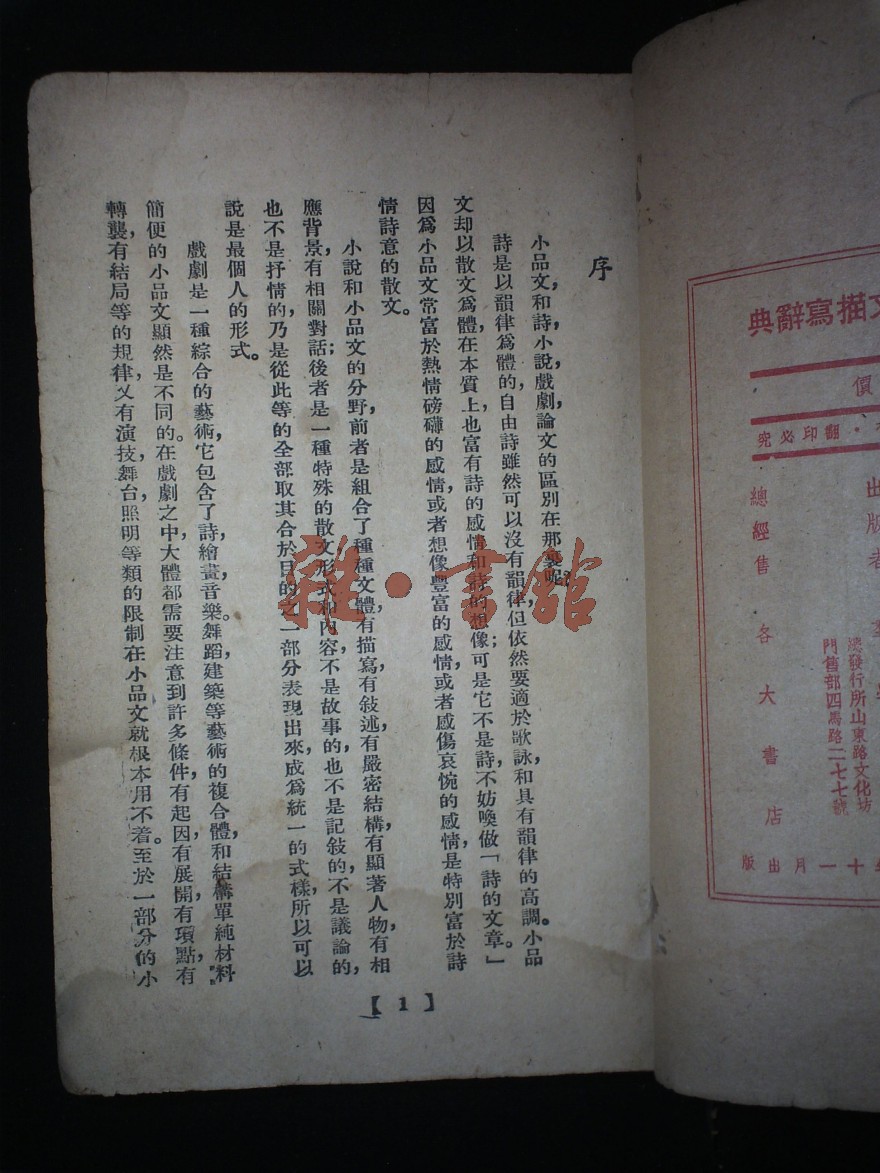 序
小品文,和詩,小說,戲劇,論文的區別在那裏呢?
詩是以韻律爲體的,自由詩雖然可以沒有韻律,但依然要適於歌詠和具有韻律的高調。小品
文却以散文爲體,在本質上也富有詩的感情和詩的想像;可是它不是詩,不妨喚做「詩的文章。」
因爲小品文常富於熱情磅礴的感情,或者想像豐富的感情,或者感傷哀惋的感情,是特別富於詩
情詩意的散文。
小說和小品文的分野,前者是組合了種種文體,有描寫,有敍述,有嚴密結構,有顯著人物,有相
應背景,有相關對話;後者是一種特殊的散文形式和內容,不是故事的,也不是記敍的,不是議論的,
也不是抒情的,乃是從此等的全部取其合於目的之一部分表現出來,成爲統一的式樣,所以可以
說是最個人的形式。
戲劇是一種綜合的藝術,它包含了詩,繪畫,音樂,舞蹈,建築等藝術的複合體,和結構單純,材料
簡便的小品文顯然是不同的。在戲劇之中,大體都需要注意到許多條件,有起因,有展開,有項點,有
轉襲,有結局等的規律,又有演技,舞台,照明等類的限制,在小品文就根本用不着。至於一部分的小
【1】
文描寫辭典
價
翻印必究
出版者
總經售 各大書店
總發行所山東路文化坊
門售部四馬路二七七號
十一月出版
雜·書館